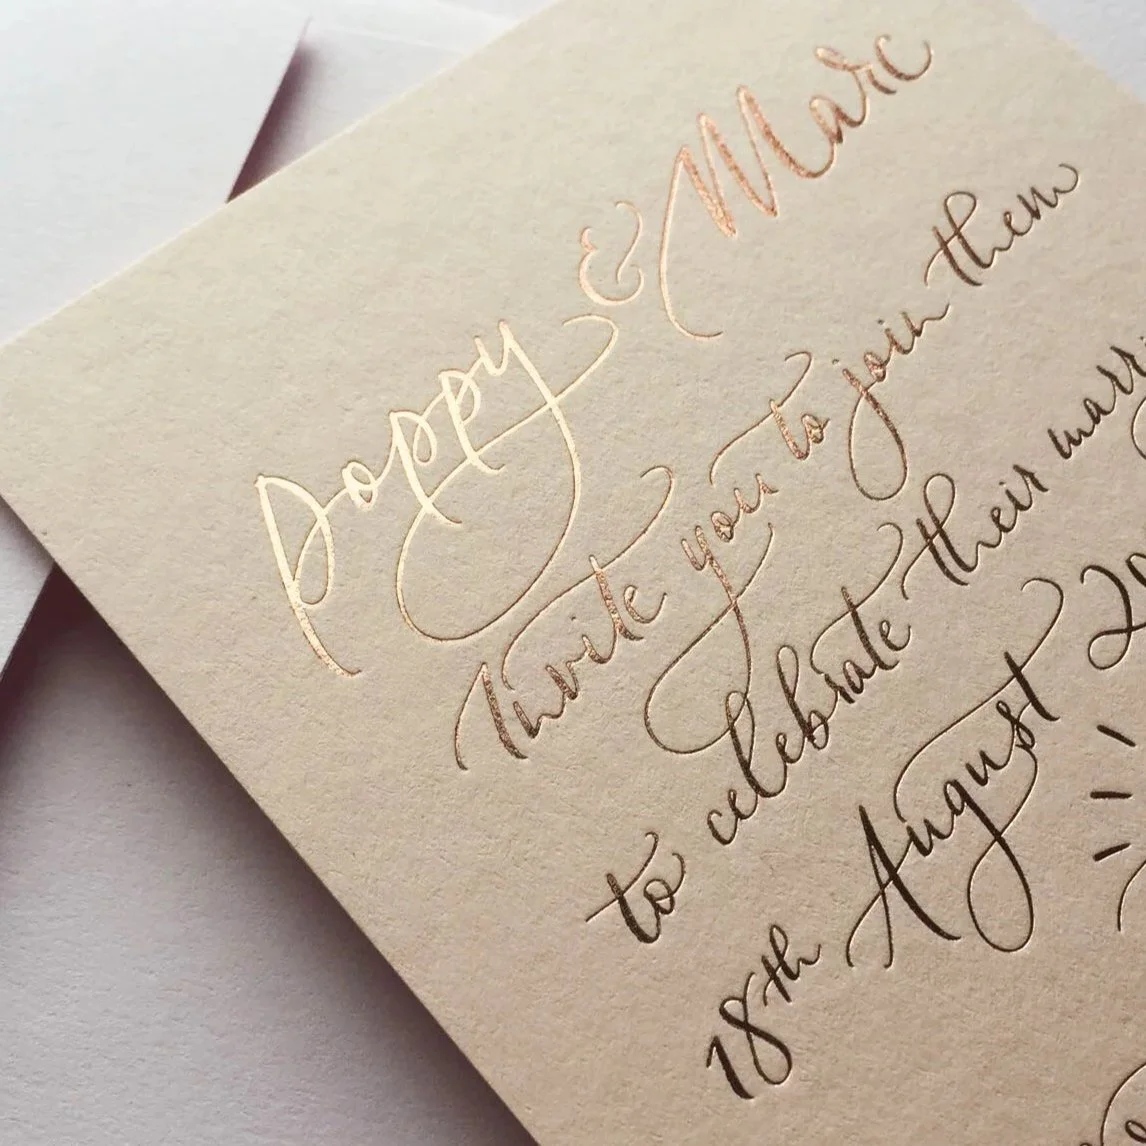 Poppy & Marc
Invite you to join them
to celebrate their marri
18th August 20